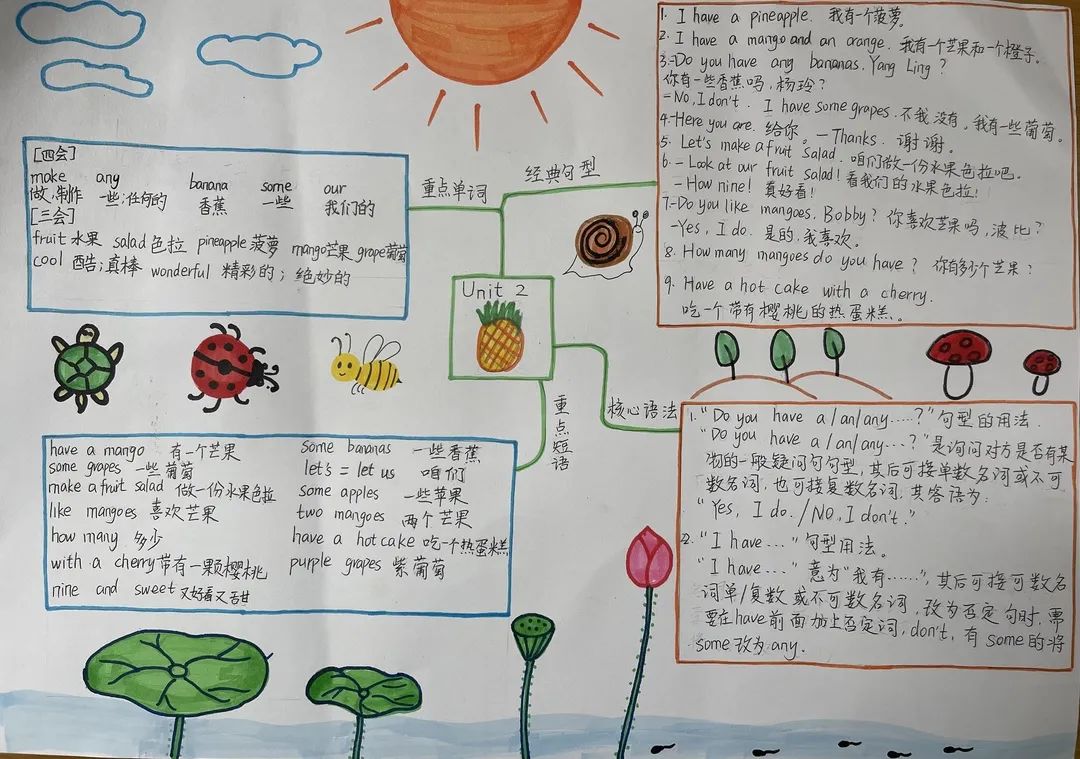 [四会]
make any banana some our
做,制作 一些;任何的 香蕉 一些 我们的
[三会]
fruit 水果 salad 色拉 pineapple 菠萝 mango芒果 grape葡萄
cool 酷;真棒 wonderful 精彩的;绝妙的
重点单词
经典句型
1. I have a pineapple. 我有一个菠萝。
2. I have a mango and an orange. 我有一个芒果和一个橙子。
3.-Do you have any bananas. Yang Ling?
你有一些香蕉吗,杨玲?
-No, I don't. I have some grapes. 不我没有。我有一些葡萄。
4.-Here you are. 给你。 -Thanks. 谢谢。
5. Let's make a fruit salad. 咱们做一份水果色拉吧。
6.-Look at our fruit salad! 看我们的水果色拉!
-How nine! 真好看!
7.-Do you like mangoes. Bobby? 你喜欢芒果吗,波比?
-Yes, I do. 是的.我喜欢。
8. How many mangoes do you have? 你有多少个芒果?
9. Have a hot cake with a cherry.
吃一个带有樱桃的热蛋糕。
Unit 2
重点短语
核心语法
have a mango 有一个芒果
some grapes 一些葡萄
make a fruit salad 做一份水果色拉
like mangoes 喜欢芒果
how many 多少
with a cherry带有一颗樱桃
nine and sweet 又好看又香甜
some bananas 一些香蕉
let's = let us 咱们
some apples 一些苹果
two mangoes 两个芒果
have a hot cake 吃一个热蛋糕
purple grapes 紫葡萄
1."Do you have a/an/any.....?"句型的用法.
"Do you have a/an/any...?"是询问对方是否有某
物的一般疑问句句型,其后可接单数名词或不可
数名词,也可接复数名词,其答语为:
"Yes, I do./No, I don't."
2."I have..."句型用法。
"I have..."意为"我有......",其后可接可数名
词单/复数或不可数名词,改为否定句时,需
要在have前面加上否定词,don't,有some的将
some改为any.